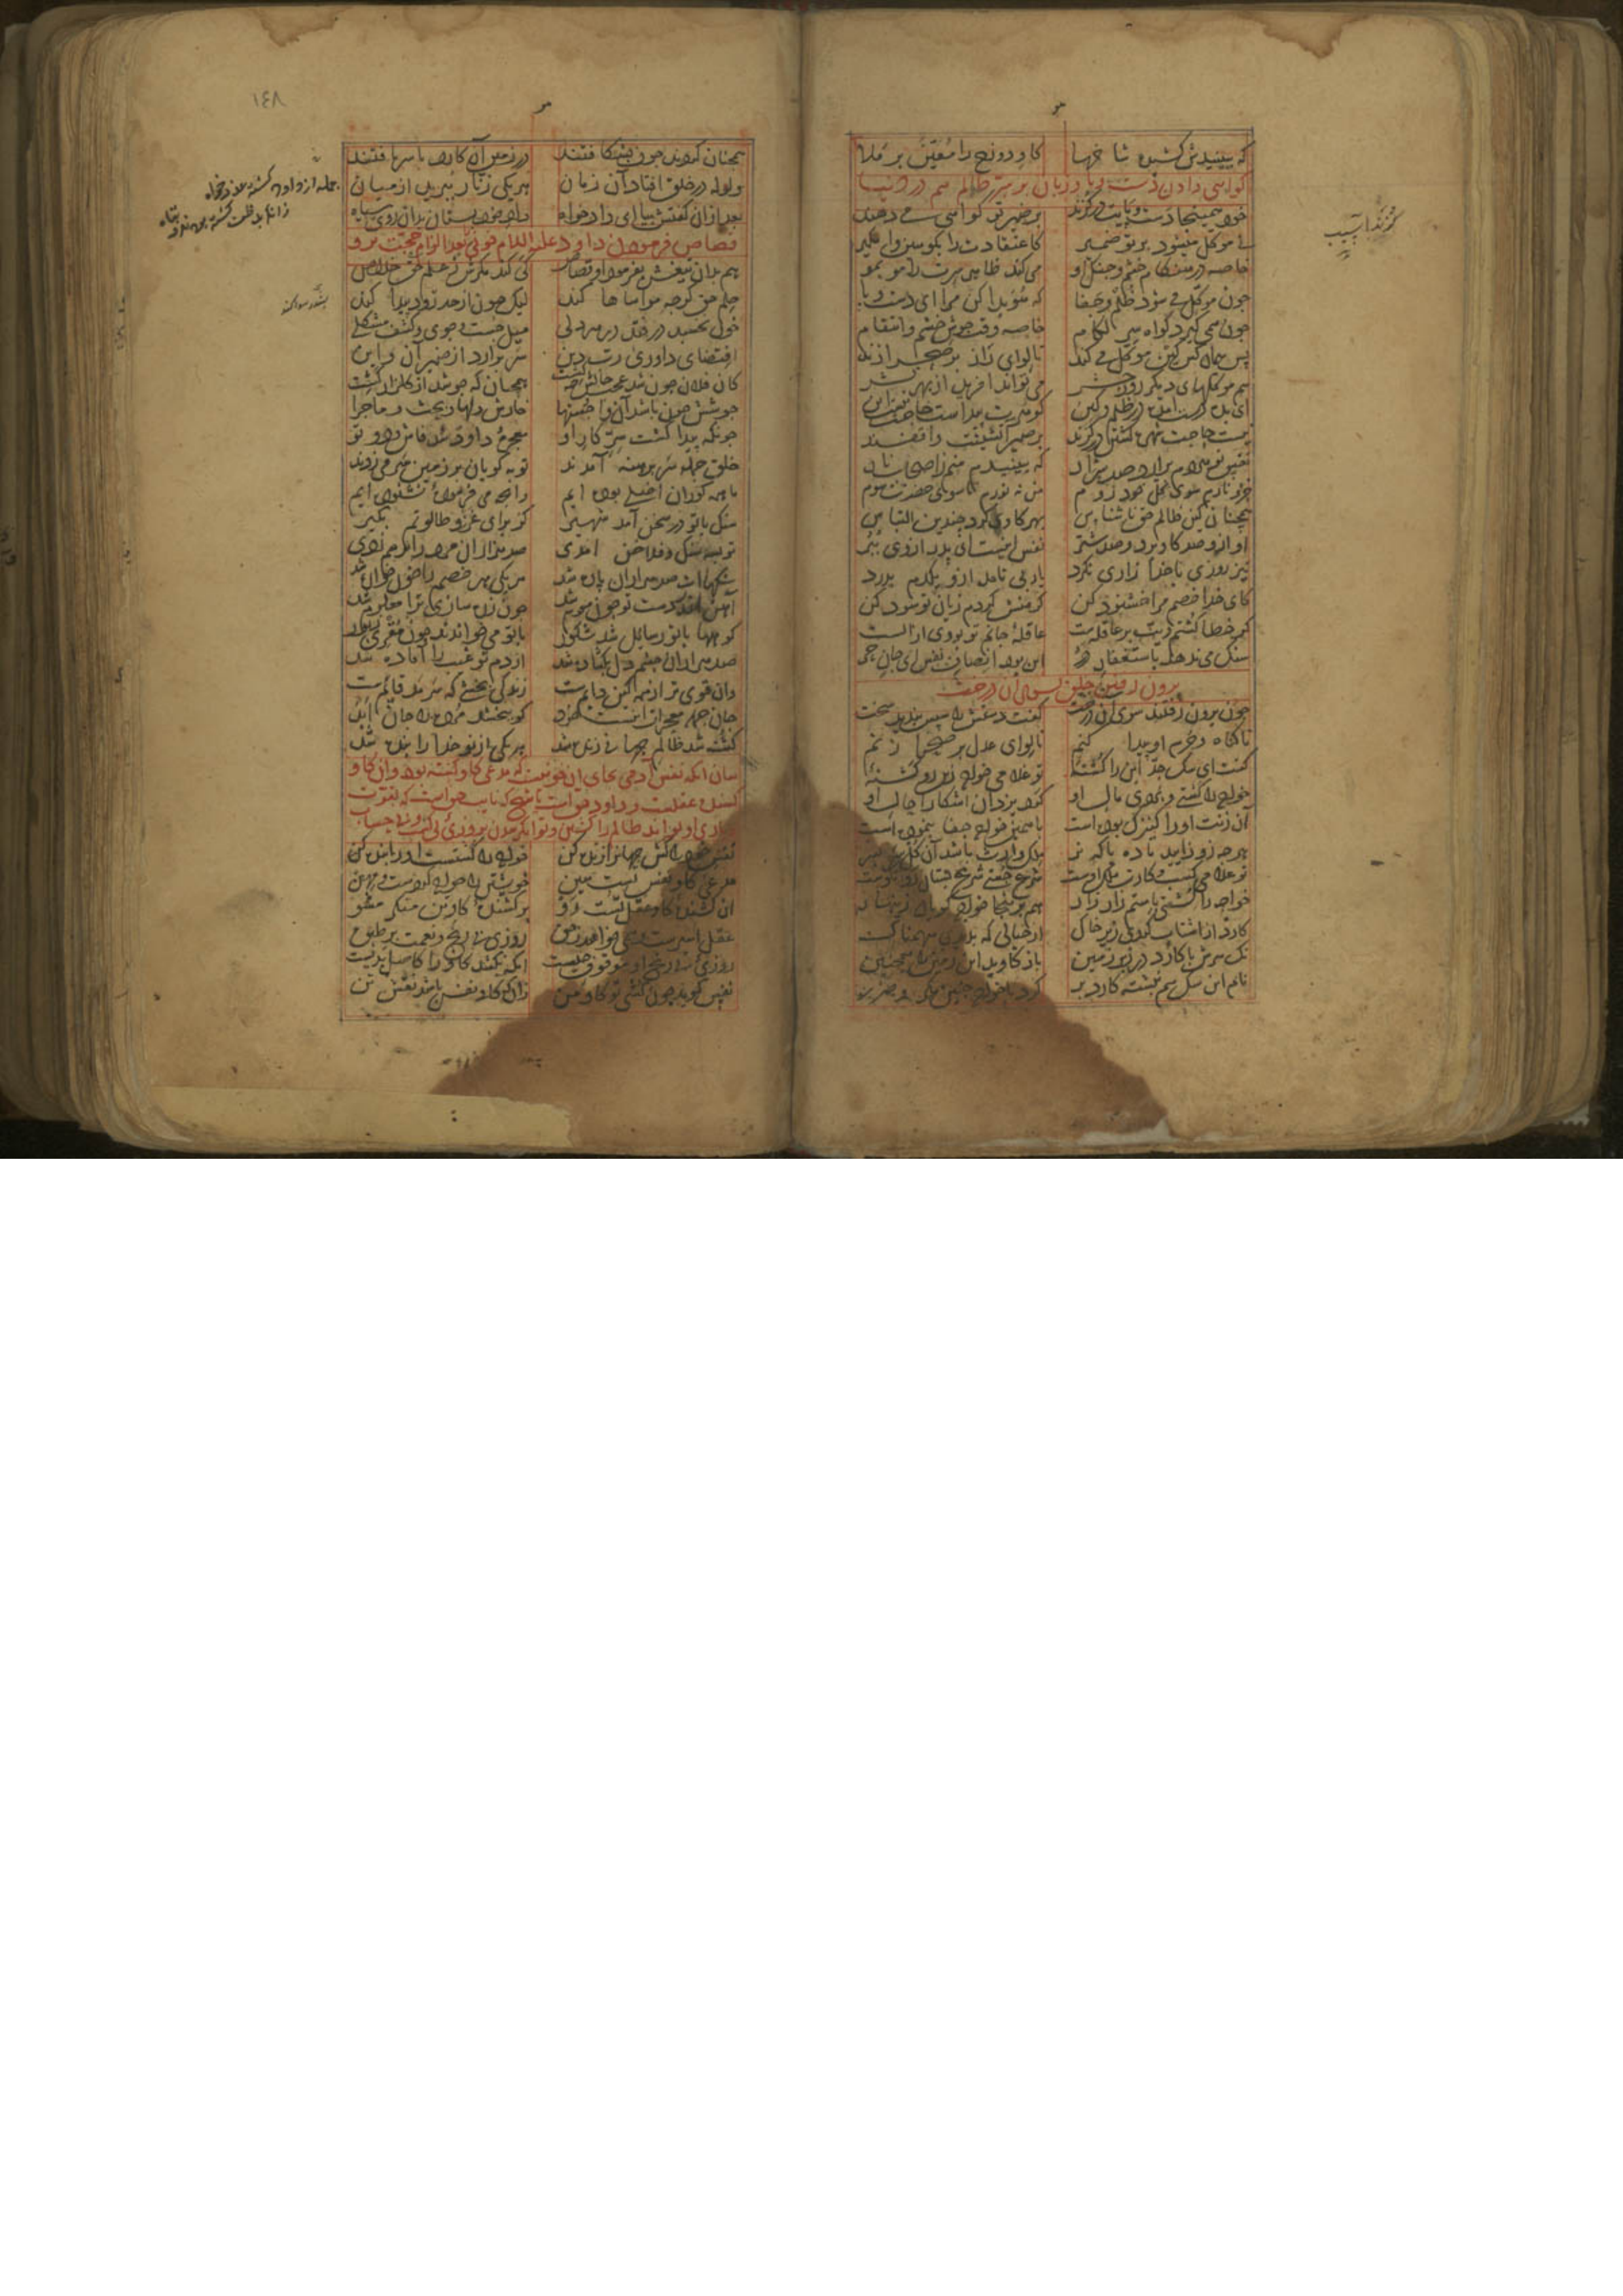 که ببینیدش کشیده شاخها	کاو دوزخ را معین بر ملا
کواهی دادن دست و پا و زبان بر سر ظالم هم در دنیا
خود همینجا دست و پایت در کزند	بر ضمیر تو کواهی می دهند
که موکل میشود بر تو ضمیر	کاعتقادت را بکو مپوش وامکیر
خاصه در هنکام خشم و جنک او	می کند ظاهر سرت را مو بمو
چون موکل می شود ظلم و جفا	که هویدا کن مرا ای دست و پا
چون همی کیرد کواه سر لکام	خاصه وقت جوش خشم و انتقام
پس همان کس کین موکل می کند	تا لوای راز بر صحرا زند
هم موکلهای دیکر روز حشر	می تواند آفرید از بهر نشر
ای بده دست آمده در ظلم و کین	کوهرت پیداست حاجت نیست این
نیست حاجت شهره کشتن در کزند	بر ضمیر آتشینت واقفند
نفس تو هر دم برآرد صد شرار	که ببینیدم منم ز اصحاب نار
جزو نارم سوی کل خود روم	من نه نورم تا سوی حضرت شوم
همچنان کین ظالم حق ناشناس	بهر کاوی کرد چندین التباس
او ازو صد کاو برد و صد شتر	نفس اینست ای پدر از وی ببر
نیز روزی با خدا زاری نکرد	یا ربی نامد ازو یکدم بدرد
کای خدا خصم مرا خشنود کن	کر منش کردم زیان تو سود کن
کر خطا کشتم دیت بر عاقله ست	عاقلهٔ جانم تو بودی از الست
سنک می ندهد باستغفار در	این بود انصاف نفس ای جان حر
برون رفتن خلق بسوی آن درخت
چون برون رفتند سوی آن درخت	کفت دستش را سپس بندید سخت
تا کناه و جرم او پیدا کنم	تا لوای عدل بر صحرا زنم
کفت ای سک جد این را کشتهٔ	تو غلامی خواجه زین رو کشتهٔ
خواجه را کشتی و بردی مال او	کرد یزدان آشکارا حال او
آن زنت او را کنیزک بوده است	با همین خواجه جفا بنموده است
هر چه زو زایید ماده یا که نر	ملک وارث باشد آن کل سر بسر
تو غلامی کسب و کارت ملک اوست	شرع جستی شرع بستان رو نکوست
خواجه را کشتی باستم زار زار	هم برینجا خواجه کویان زینهار
کارد از اشتاب کردی زیر خاک	از خیالی که بدیدی سهمناک
نک سرش با کارد در زیر زمین	باز کاوید این زمین را همچنین
نام این سک هم نبشته کارد بر	کرد با خواجه چنین مکر و ضرر
کزندآسیب
۱٤٨
همچنان کردند چون بشکافتند	در زمین آن کارد با سر یافتند
ولوله در خلق افتاد آن زمان	هر یکی زنار ببرید از میان
بعد ازان کفتش بیا ای دادخواه	داد خود بستان بدان روی سیاه
قصاص فرمودن داود علیه السلام خونی را بعد از الزام حجت برو
هم بدان تیغش بفرمود او قصاص	کی کند مکرش ز علم حق خلاص
حلم حق کرچه مواساها کند	لیک چون از حد رود پیدا کند
خون نخسبد درفتد در هر دلی	میل جست و جوی و کشف مشکلی
اقتضای داوری رب دین	سر برآرد از ضمیر آن و این
کان فلان چون شد چه شد حالش چه کشت	همچنان که جوشد از کلزار کشت
جوشش خون باشد آن وا جستها	خارش دلها و بحث و ماجرا
چونکه پیدا کشت سر کار او	معجزهٔ داود شد فاش و دو تو
خلق جمله سر برهنه آمدند	توبه کویان بر زمین سر می زدند
ما همه کوران اصلی بوده ایم	وانچ می فرمودهٔ نشنوده ایم
سنک با تو در سخن آمد شهیر	کز برای غزو طالوتم بکیر
تو بسه سنک و فلاخن آمدی	صد هزاران مرد را بر هم زدی
سنکهاات صد هزاران پاره شد	هر یکی هر خصم را خون خواره شد
آهن اندر دست تو چون موم شد	چون زره سازی ترا معلوم شد
کوهها با تو رسائل شد شکور	با تو می خوانند چون مقری زبور
صد هزاران چشم دل بکشاده شد	از دم تو غیب را آماده شد
وان قوی تر زان همه کین دایمست	زندکی بخشی که سرمد قایمست
جان جمله معجزات اینست خود	کو ببخشد مرده را جان ابد
کشته شد ظالم جهانی زنده شد	هر یکی از نو خدا را بنده شد
بیان آنکه نفس آدمی بجای آن خونیست که مدعی کاو کشته بود و آن کاو
کشنده عقلست و داود حق است یا شیخ که نایب حق است که بقوت
و یاری او تواند ظالم را کشتن و توانکر شدن بروزی بی کسب و بی حساب
نفس خود را کش جهانرا زنده کن	خواجه را کشتست او را بنده کن
مدعی کاو نفس تست هین	خویشتن را خواجه کردست و مهین
آن کشندهٔ کاو عقل تست رو	بر کشندهٔ کاو تن منکر مشو
عقل اسیرست و همی خواهد ز حق	روزی بی رنج و نعمت بر طبق
روزی بی رنج او موقوف چیست	آنکه بکشد کاو را کاصل بدیست
نفس کوید چون کشی تو کاو من	زانکه کاو نفس باشد نقش تن